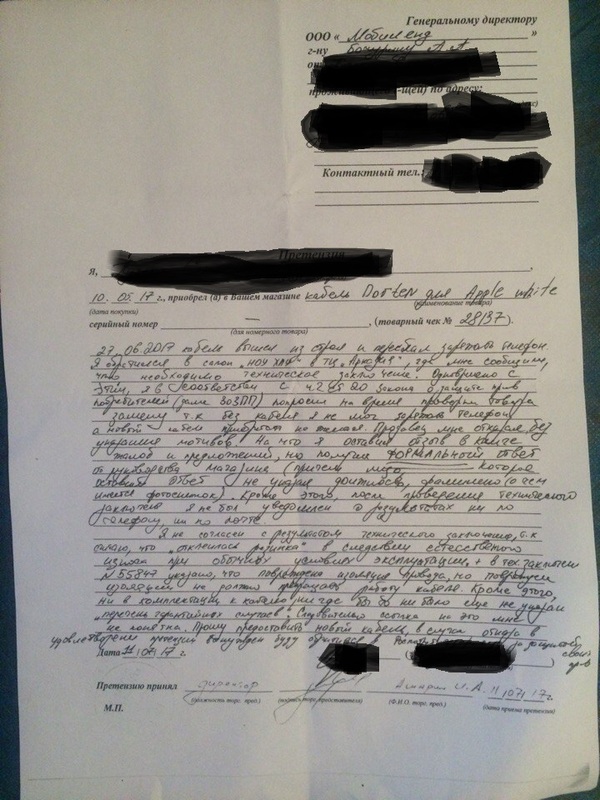 Генеральному директору
ООО « Мобиленд »
г-ну А А
проживающ -щей) по адресу:
Контактный тел.:
Претензия
Я,
10. 05. 17 г., приобрел (а) в Вашем магазине кабель Dotfes для Apple white
(дата покупки) (наименование товара)
серийный номер — , (товарный чек № 28137 ).
(для номерного товара)
27.06.2017 кабель вышел из строя и перестал заряжать телефон.
Я обратился в салон "НОУ-ХАУ" в ТЦ " ", где мне сообщили,
что необходимо техническое заключение. Одновременно с
этим, я в соответствии с ч.2 ст 20 закона о защите прав
потребителей (далее ЗОЗПП) попросил на время проверки товара
замену т.к без кабеля я не мог заряжать телефон
а новый кабель приобретать не желаю. Продавец мне отказал, без
указания мотивов. На что я оставил отзыв в книге
жалоб и предложений, но получил ФОРМАЛЬНЫЙ ответ
от руководства магазина (причем лицо которое
оставило ответ не указало должность, (о чем
имеется фотоснимок). Кроме этого, после проведения технического
заключения я не был уведомлен о результатах ни по
телефону, ни по почте
Я не согласен с результатом технического заключения, т.к
считаю, что "отклеилась резинка" в следствии естественного
износа при обычных условиях эксплуатации, + в тех заключении
N 55847 указано, что повреждена изоляция провода, но
изоляции не должно прекращать работу кабеля. Кроме этого,
ни в комплектации к кабелю ни где бы то ни было еще не указан
"перечень гарантийных случаев". Следовательно ссылка на это мне
не понятна. Прошу предоставить новый кабель, в случае отказа в
удовлетворении претензии вынужден буду обратиться в за защитой своих прав
Дата 11 07 17 г. ( )
Претензию принял директор И. А. 11 07 17 г.
(должность торг. пред.) (подпись торг. представителя) (Ф.И.О. торг. пред.) (дата приема претензии)
М.П.